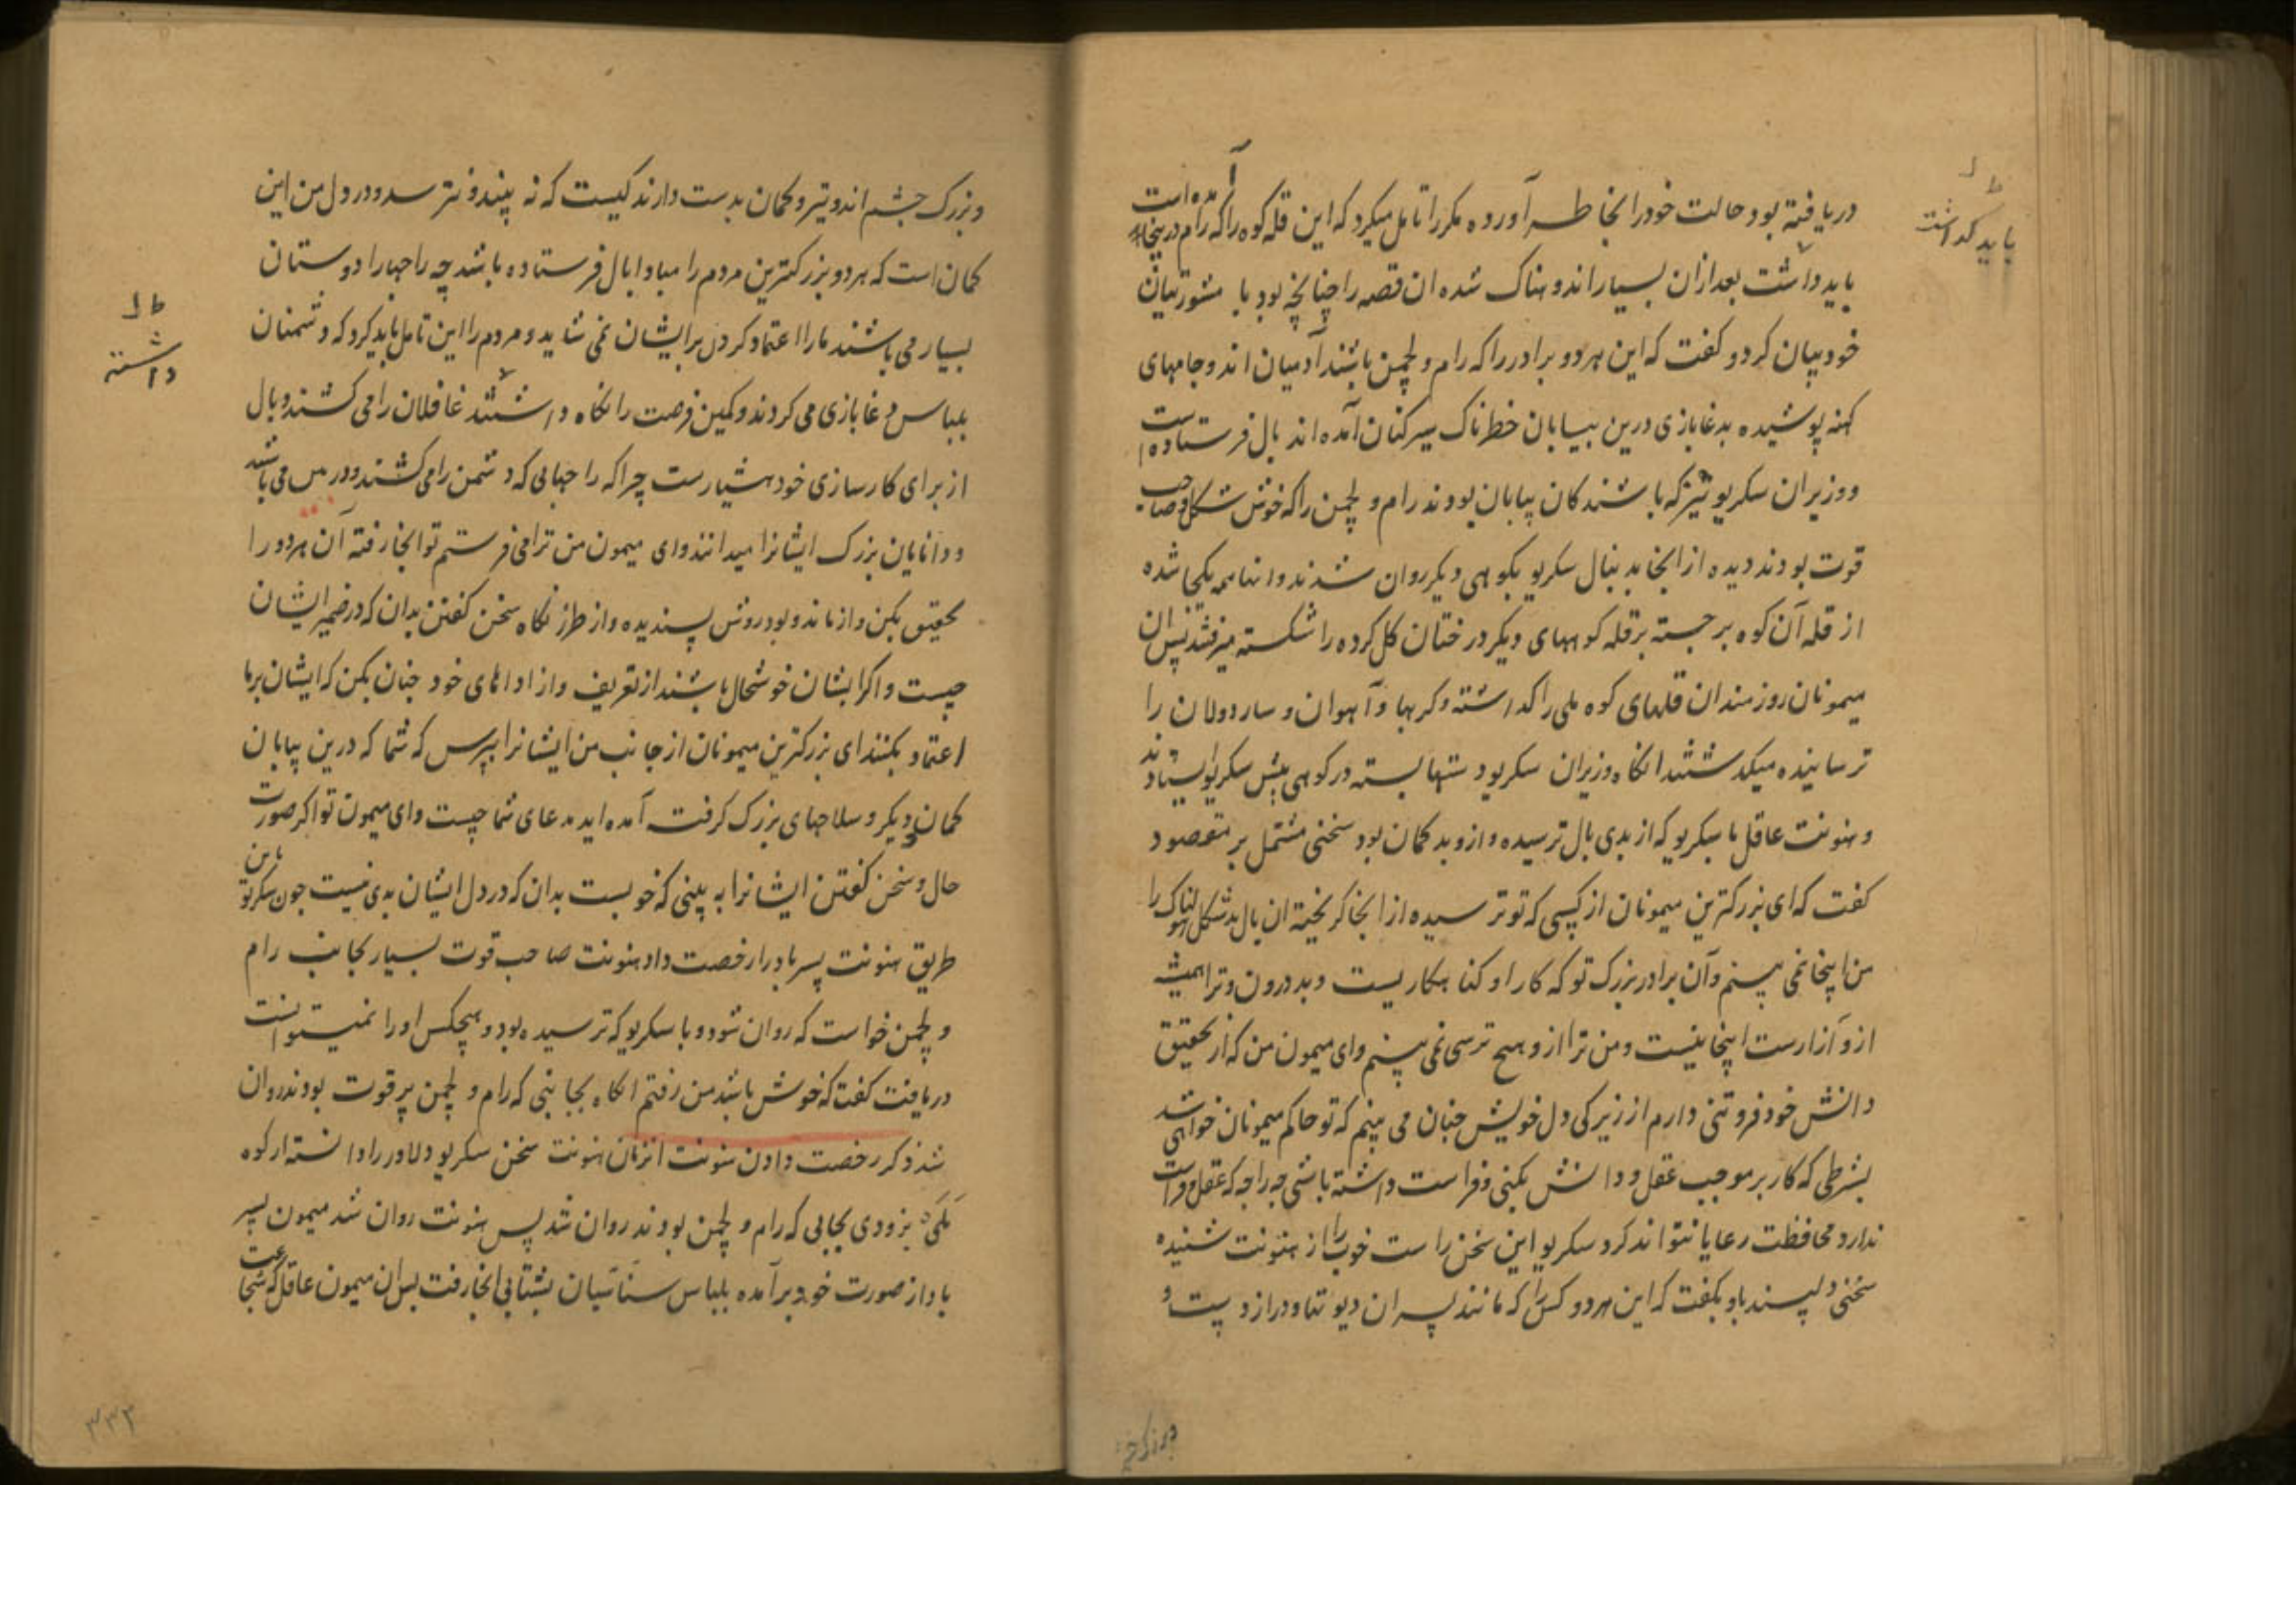 دریافته بود و حالت خود را بخاطر آورده مکرر تامل میکرد که این قله کوه را که رام درینجا آمده است
باید داشت بعد ازان بسیار اندوهناک شده ان قصه را چنانچه بود با مشورتیان
خود بیان کرد و گفت که این هر دو برادر را که رام و لچمن باشند آدمیان اند و جامهای
کهنه پوشیده بدغابازی درین بیابان خطرناک سیرکنان آمده اند بال فرستاده است
و وزیران سکریو نیز که باشندکان بیابان بودند رام و لچمن را که خوش شکل و صاحب
قوت بودند دیده از انجا بدنبال سکریو بکوهی دیکر روان شدند و اینها همه یکجا شده
از قله آن کوه برجسته بر قله کوههای دیکر درختان کل کرده را شکسته میرفتند پس ان
میمونان روزمندان قلهای کوه ملی را کداشته و کربها و آهوان و ساردولان را
ترسانیده میکدشتند انکاه وزیران سکریو دستها بسته در کوهی پیش سکریو ایستادند
و هنونت عاقل با سکریو که از بدی بال ترسیده و ازو بدکمان بود سخنی مشتمل بر مقصود
کفت که ای بزرکترین میمونان از کسی که تو ترسیده از انجا کریخته ان بال بدشکل هولناک را
من اینجا نمی بینم و آن برادر بزرک تو که کار او کناهکاریست و بددرون و ترا همیشه
ازو آزارست اینجا نیست و من ترا ازو هیچ ترسی نمی بینم و ای میمون من که از تحقیق
دانش خود فروتنی دارم از زیرکی دل خویش چنان می بینم که تو حاکم میمونان خواهی شد
بشرطی که کار بر موجب عقل و دانش بکنی و فراست داشته باشی چه راجه که عقل و فراست
ندارد محافظت رعایا نتواند کرد سکریو این سخن راست خوب را از هنونت شنیده
سخنی دلپسند باو بکفت که این هر دو کس را که مانند پسران دیوتها و درازدست و
باید کداشت
و بزرک چشم اند و تیر و کمان بدست دارند کیست که نه بیند و نترسد و در دل من این
کمان است که هر دو بزرکترین مردم را مبادا بال فرستاده باشد چه راجها را دوستان
بسیار می باشند ما را اعتماد کردن بر ایشان نمی شاید و مردم را این تامل باید کرد که دشمنان
بلباس دغابازی می کردند و کمین فرصت را نکاه داشتند غافلان را می کشند و بال
از برای کارسازی خود هشیارست چرا که راجهایی که دشمن را می کشند دوررس می باشند
و دانایان بزرک ایشانرا میدانند و ای میمون من ترا می فرستم تو انجا رفته آن هر دو را
تحقیق بکن و از ماند و بود و روش پسندیده و از طرز نکاه سخن کفتن بدان که در ضمیر ایشان
چیست و اکر ایشان خوشحال باشند از تعریف و از اداهای خود چنان بکن که ایشان بر ما
اعتماد بکنند ای بزرکترین میمونان از جانب من ایشانرا بپرس که شما که درین بیابان
کمان و دیکر سلاحهای بزرک کرفته آمده اید مدعای شما چیست و ای میمون تو اکر صورت
حال و سخن کفتن ایشانرا به بینی که خوبست بدان که در دل ایشان بدی نیست چون سکریو باین
طریق هنونت پسر باد را رخصت داد هنونت صاحب قوت بسیار بجانب رام
و لچمن خواست که روان شود و با سکریو که ترسیده بود و هیچکس او را نمیتوانست
دریافت کفت که خوش باشد من رفتم انکاه بجانبی که رام و لچمن پرقوت بودند روان
شد ذکر رخصت دادن هنونت انزمان هنونت سخن سکریو دلاور را دانسته از کوه
ملی بزودی بجایی که رام و لچمن بودند روان شد پس هنونت روان شد میمون پسر
باد از صورت خود برآمده بلباس سناسیان بشتابی انجا رفت پس ان میمون عاقل که شجاعت
داشته
۳۳۲